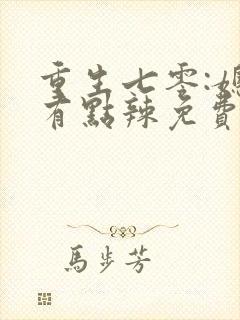 重生七零:媳
有點辣免費
馬步芳